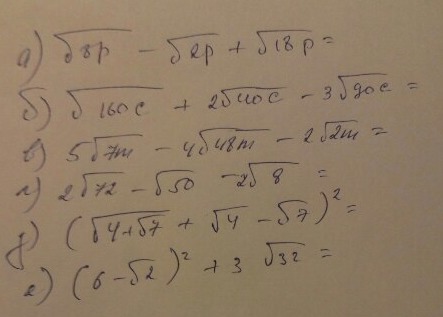 а) √8p − √2p + √18p =
б) √160c + 2√40c − 3√90c =
в) 5√7m − 4√48m − 2√2m =
г) 2√72 − √50 − 2√8 =
д) (√4+√7 + √4 − √7)² =
е) (6−√2)² + 3 √32 =